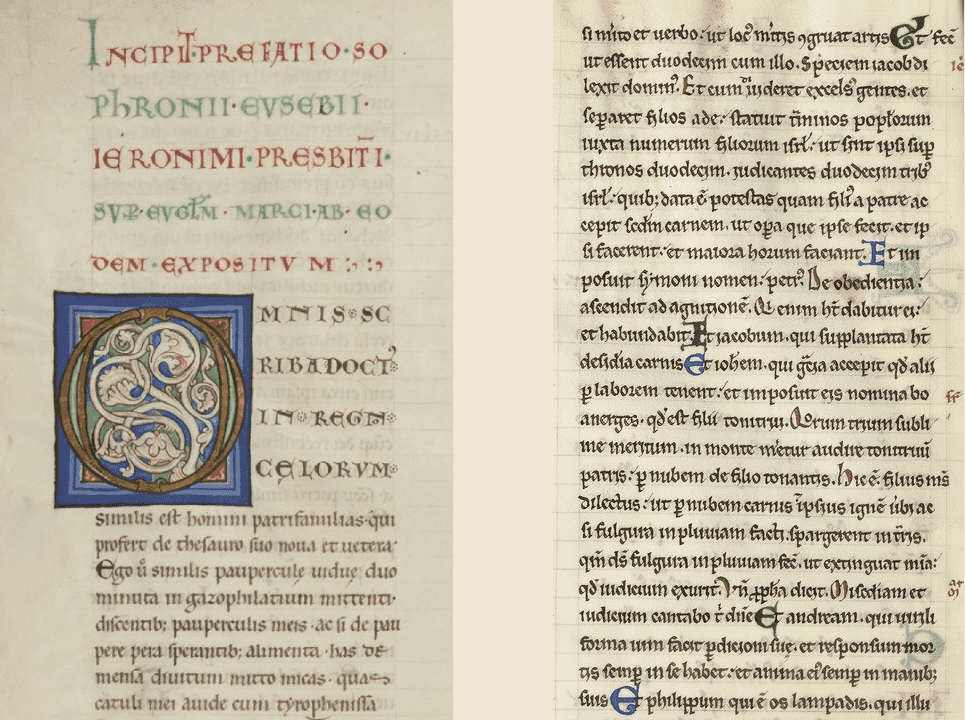 INCIPIT·PREFATIO·SO
PhRONII·EVSEBII·
IERONIMI·PRESBITI·
SVP·EVGLM·MARCI·AB·EO
DEM·EXPOSITVM
OMNIS·SC
RIBA DOCT'
IN·REGN
CĘLORVM
similis est homini patrifamilias·qui
profert de thesauro suo noua et uetera·
Ego ů similis paupercule uidue duo
minuta in gazophilatium mittenti·
discentib; pauperculis meis·ac si de pau
pere pera sperantib; alimenta·has de
mensa diuitum mitto micas·quas
catuli mei auide cum tyrophenissa
si mito et verbo: ut loc' mitis ꝯgruat artis Et fec̄
ut essent duodecim cum illo. Speciem iacob di
lexit domin'. Et cum diuideret excels' gentes. et
seꝑaret filios ade: statuit t̄minos popl̄orum
iuxta numerum filiorum isrl̄: ut sint ipsi suꝑ
thronos duodecim. iudicantes duodecim trib'
isrl̄: quib; data ē potestas quam fili' a patre ac
cepit sc̄dm carnem. ut oꝑa que ipse fecit. et ip
si facerent: et maiora horum faciant. Et im
posuit symoni nomen: petr'. De obedientia
ascendit ad agnitionē. Qui enim ht̄ dabitur ei:
et habundabit. Et jacobum. qui supplantata ht̄
desidia carnis Et ioh̄em. qui gr̄a accepit qd̄ alij
ꝑ laborem tenent: et imposuit eis nomina bo
anerges. qd̄ est filii tonitrui. Quorum trium subli
me meritum. in monte m̄etur audire tonitruū
patris: ꝑ nubem de filio tonantis. Hic ē filius m̄s
dilectus: ut ꝑ nubem carnis ip̄sius ignē ūbi ac
si fulgura in pluuiam facti spargerent in t̄ris.
qm̄ ds̄ fulgura in pluuiam fec̄. ut extinguat mīa:
qd̄ iudicium exurit. Vn̄ ꝓph̄a dicit. Misc̄diam et
iudicium cantabo t̄ dn̄e Et andream. qui uirili
forma uim facit ꝑdicioni suę. et responsum mor
tis semꝑ in se habet: et anima ei' semꝑ in manib;
suis Et philippum qui ē os lampadis. qui illu